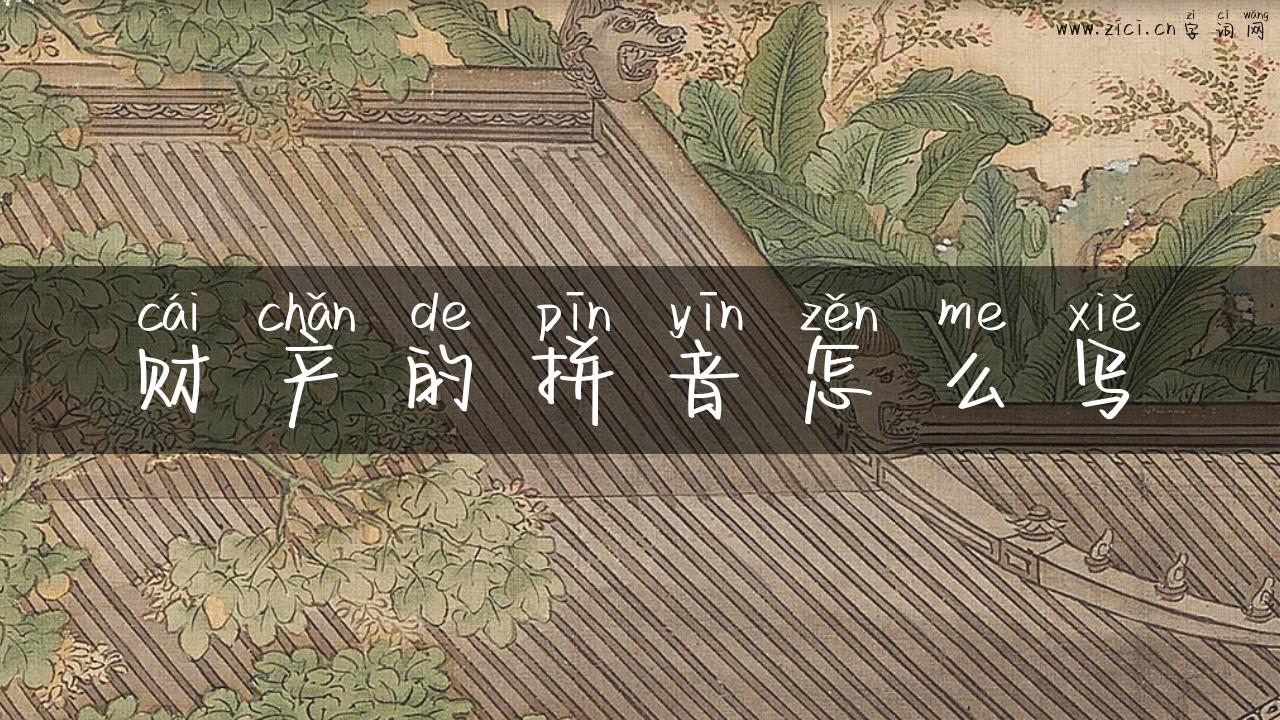 zì cí wǎng
www.zici.cn 字词网
cái chǎn de pīn yīn zěn me xiě
财产的拼音怎么写